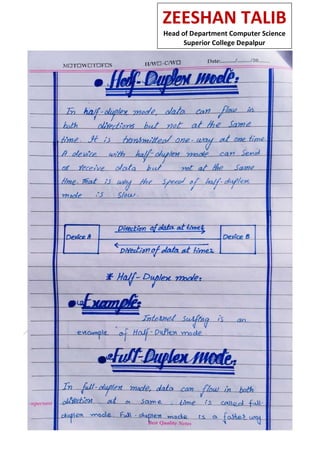 ZEESHAN TALIB
Head of Department Computer Science
Superior College Depalpur
M□T□W□T□F□S
H/W□-C/W□
Date:____/____/20____
Half-Duplex mode:
In half-duplex mode, data can flow in
both directions but not at the same
time. It is transmitted one-way at one time.
A device with half-duplex mode can send
or receive data but not at the same
time. That is way the speed of half-duplex
mode is slow.
Direction of data at time1
Device A
Device B
Direction of data at time2
* Half-Duplex mode:
Example:
Internet surfing is an
example of Half-Duplex mode
Full-Duplex mode:
In full-duplex mode, data can flow in both
direction at a same time is called full-
duplex mode. Full-duplex mode is a faster way
Important
Best Quality Notes